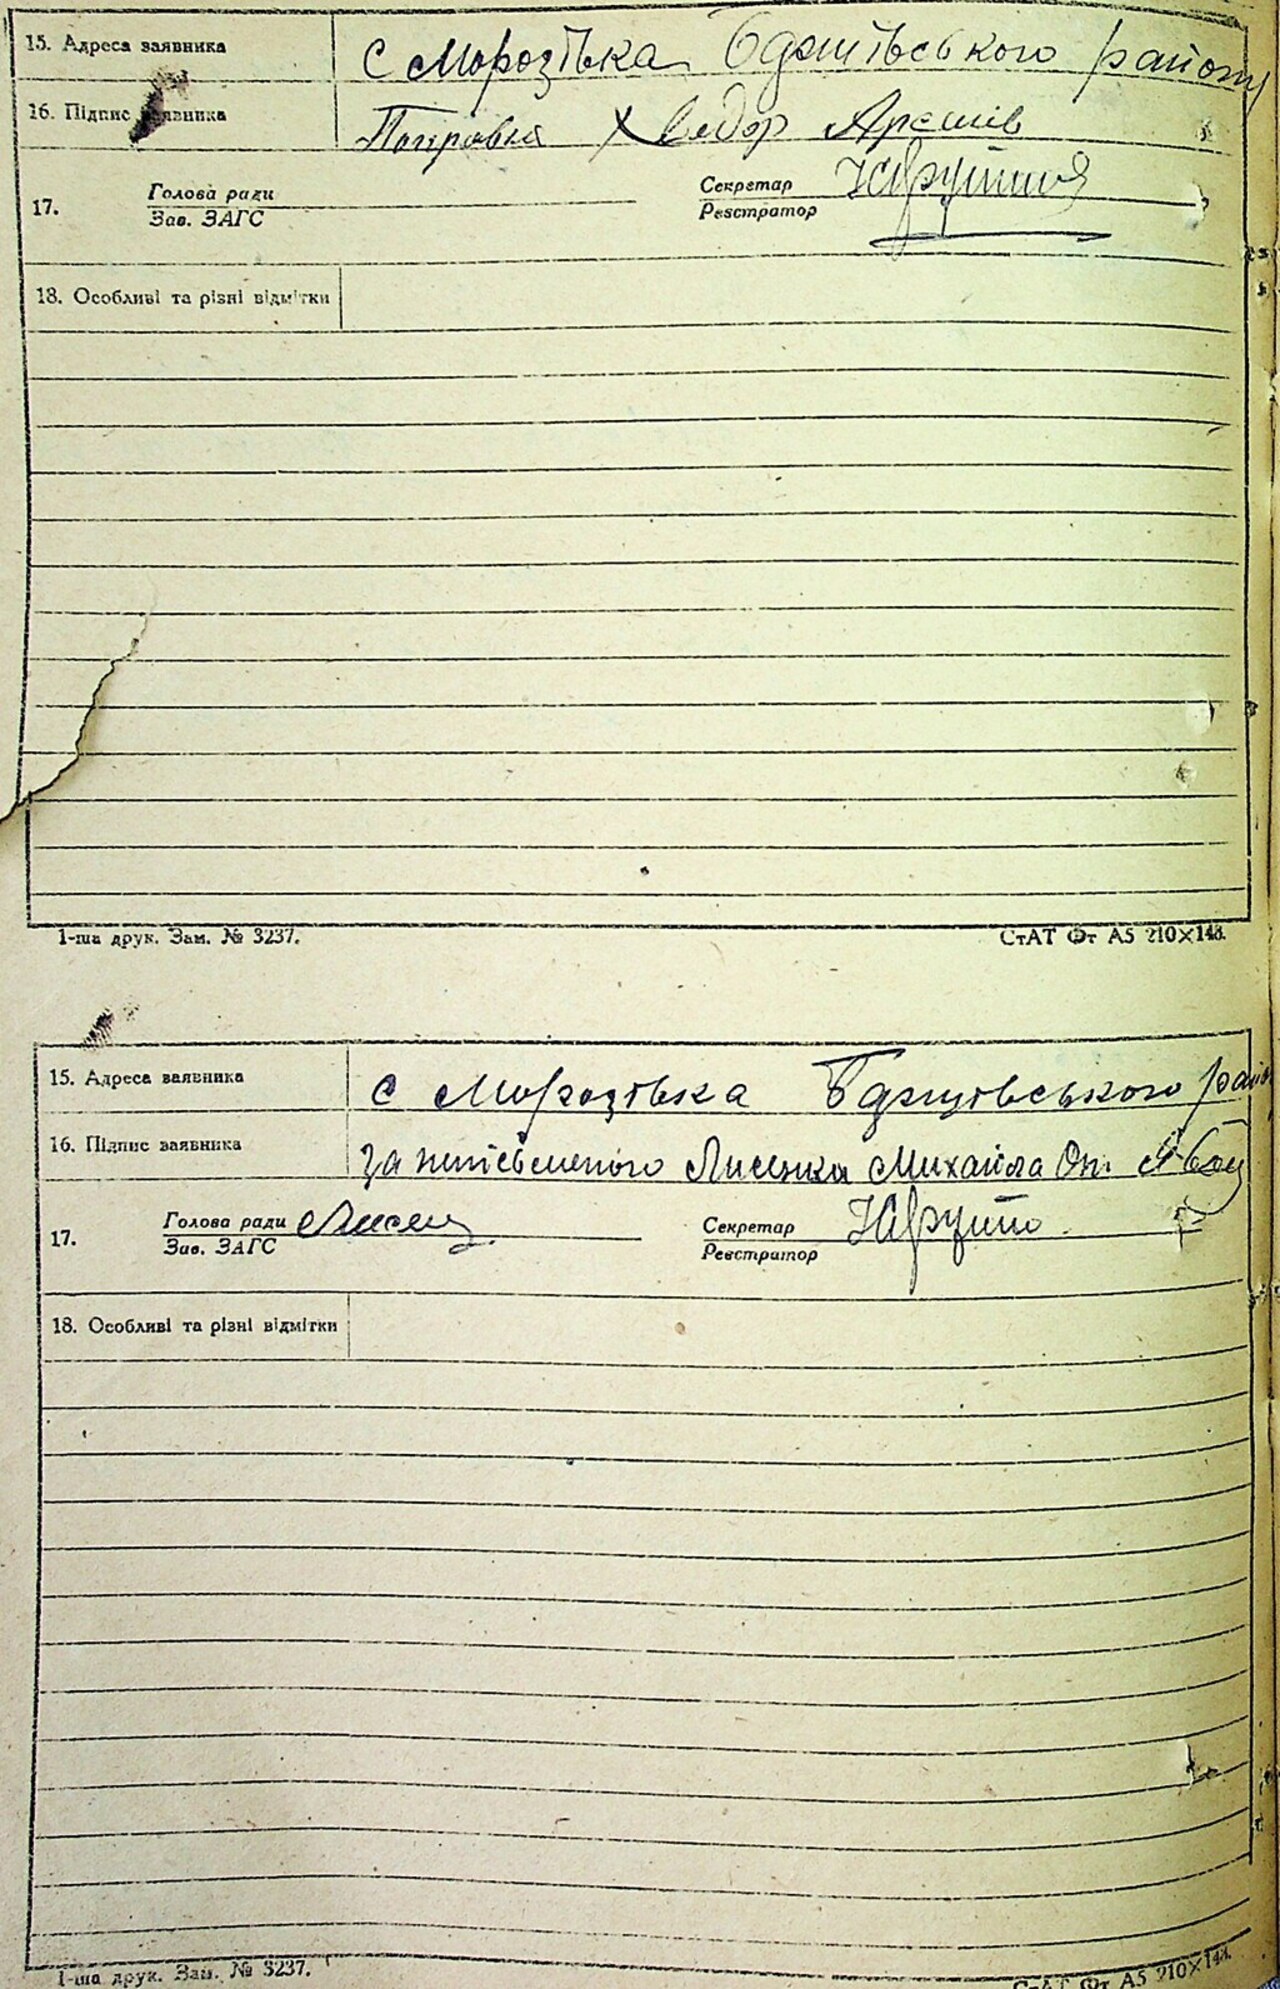 15. Адреса заявника с Морозівка Бджіївського району
16. Підпис заявника Хведор
17. Голова ради
Зав. ЗАГС
Секретар
Реєстратор
18. Особливі та різні відмітки
1-ша друк. Зам. № 3237. СтАТ Фт А5 210×148.
15. Адреса заявника с Морозівка
16. Підпис заявника за неписьменого Лисенка Михайла Оп.
17. Голова ради
Зав. ЗАГС
Секретар
Реєстратор
18. Особливі та різні відмітки
1-ша друк. Зам. № 3237. СтАТ Фт А5 210×148.